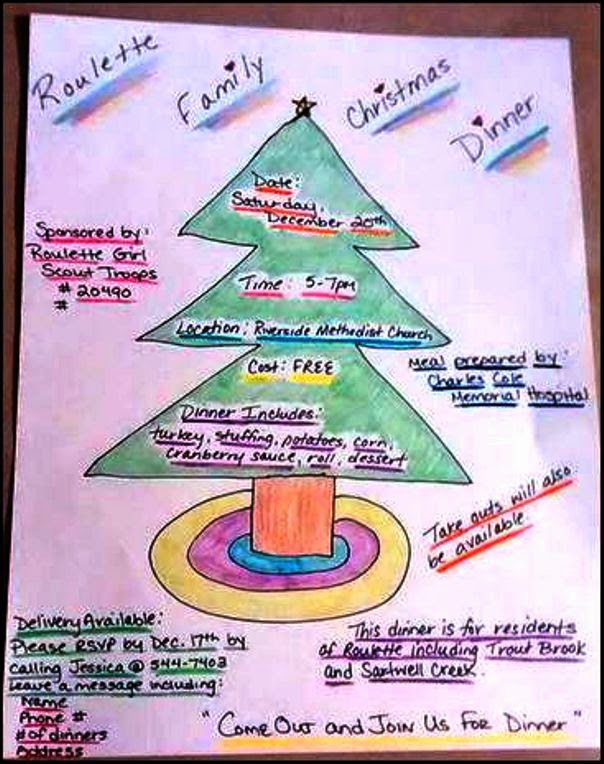 Roulette Family Christmas Dinner
Date:
Saturday,
December 20th
Sponsored by:
Roulette Girl
Scout Troops
# 20490
#
Time: 5-7pm
Location: Riverside Methodist Church
Cost: FREE
Meal prepared by:
Charles Cole
Memorial Hospital
Dinner Includes:
turkey, stuffing, potatoes, corn,
cranberry sauce, roll, dessert
Take outs will also
be available.
Delivery Available:
Please RSVP by Dec. 17th by
calling Jessica @ 544-7403
Leave a message including:
Name
Phone #
# of dinners
Address
This dinner is for residents
of Roulette including Trout Brook
and Sartwell Creek.
"Come Out and Join Us For Dinner"